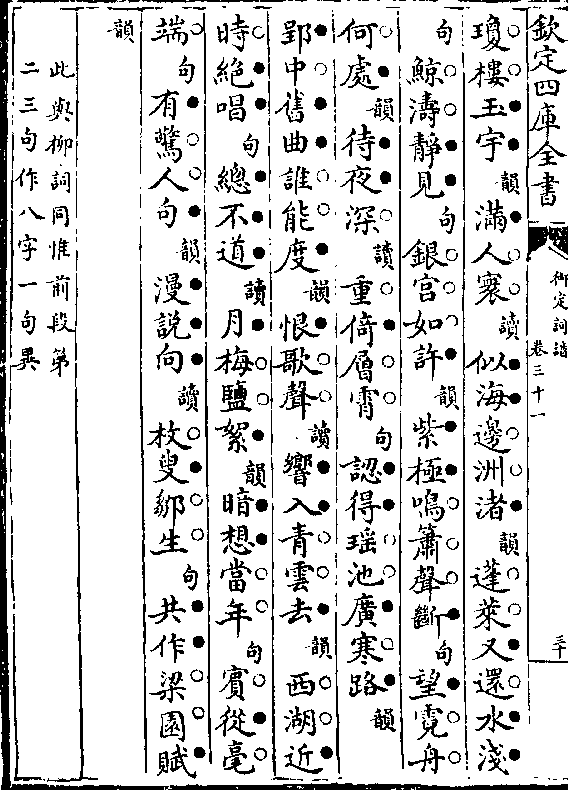 欽定四庫全書
御定詞譜
卷三十一
三十
瓊樓玉宇韻滿人寰讀似海邊洲渚韻蓬萊又還水淺
句鯨濤靜見句銀宮如許韻紫極鳴簫聲斷句望霓舟
何處韻待夜深讀重倚層霄句認得瑶池廣寒路韻
郢中舊曲誰能度韻恨歌聲讀響入青雲去韻西湖近
時絶唱句總不道讀月梅鹽絮韻暗想當年句賓從毫
端句有驚人句韻漫說向讀枚叟鄒生句共作梁園賦
韻
此與柳詞同惟前段第
二三句作八字一句異